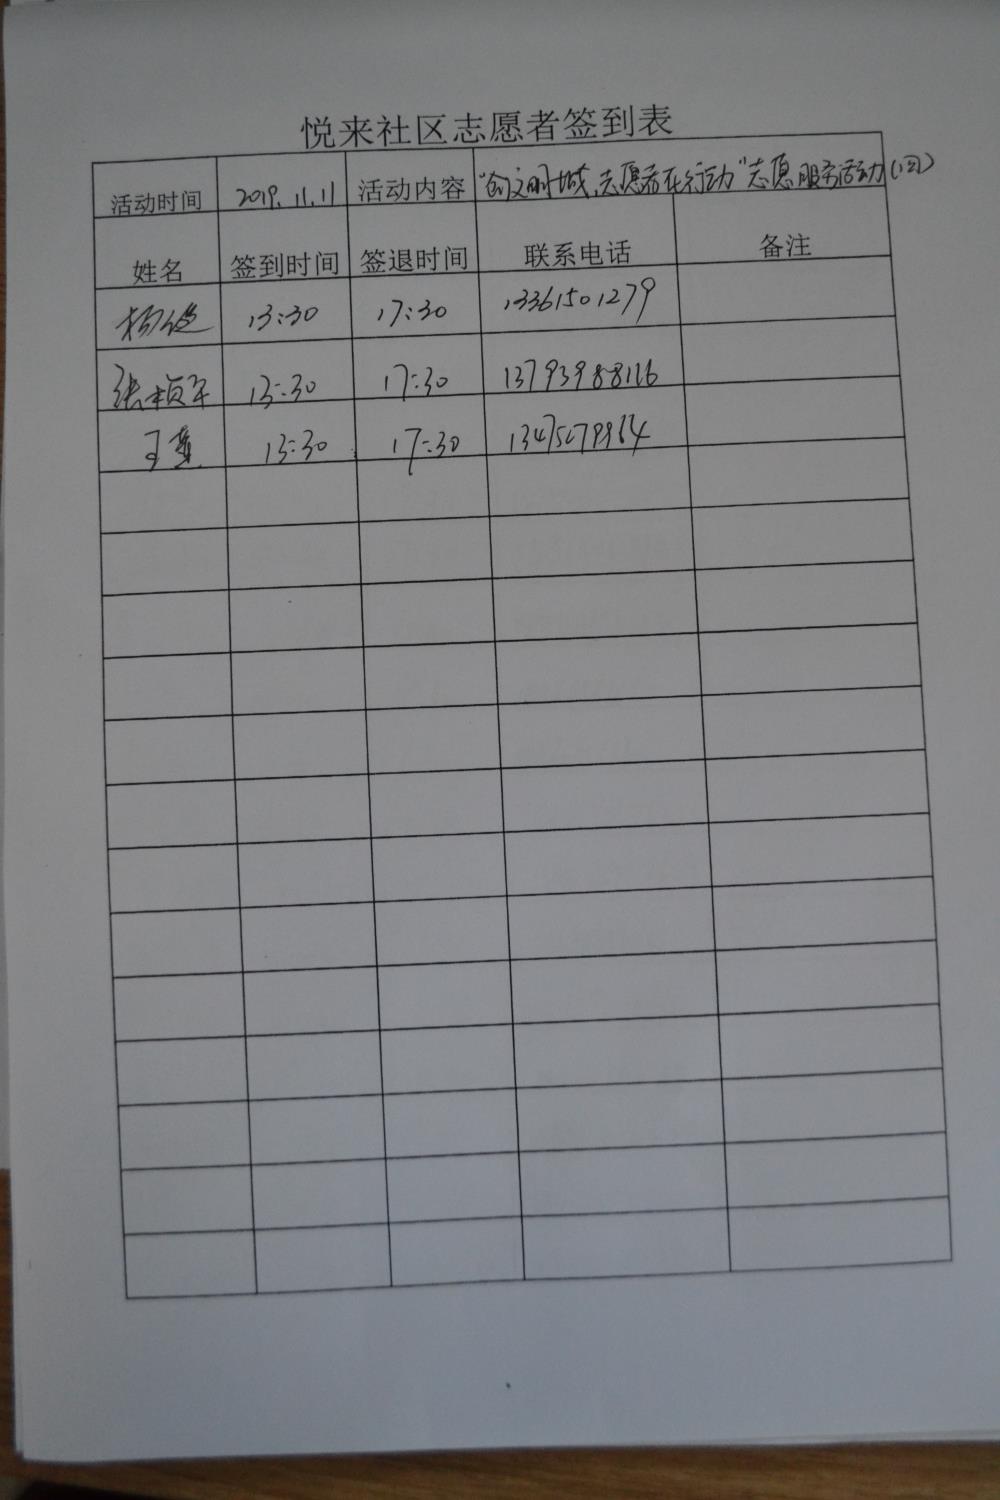 悦来社区志愿者签到表
活动时间 2019.11.11 活动内容 "创文明城,志愿者在行动"志愿服务活动(四)
姓名 签到时间 签退时间 联系电话 备注
杨 13:30 17:30 13361501279
张桢军 13:30 17:30 13793988116
王 13:30 17:30